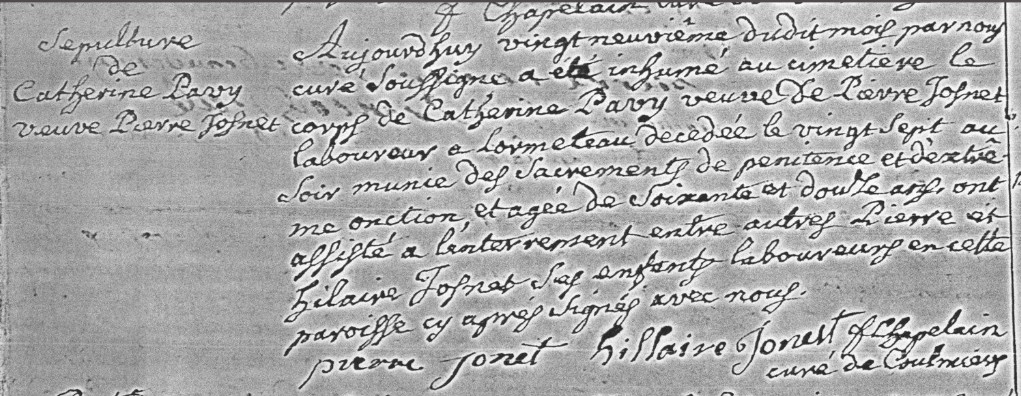 f Chapelain curé de
Sepulture
de
Catherine Pavy
veuve Pierre Josnet
Aujourdhuy vingt neuviême dudit mois par nous
curé soussigné a été inhumé au cimetiere le
corps de Catherine Pavy veuve de Pierre Josnet
laboureur a lormeteau decedée le vingt sept au
soir munie des sacrements de penitence et d'extrê-
me onction, et agée de soixante et douze ans, ont
assisté a l'enterrement entre autres Pierre et
hilaire Josnet ses enfents laboureurs en cette
paroisse cy aprés signés avec nous.
pierre jonet hillaire Jonest f Chapelain
curé de Coulmiers